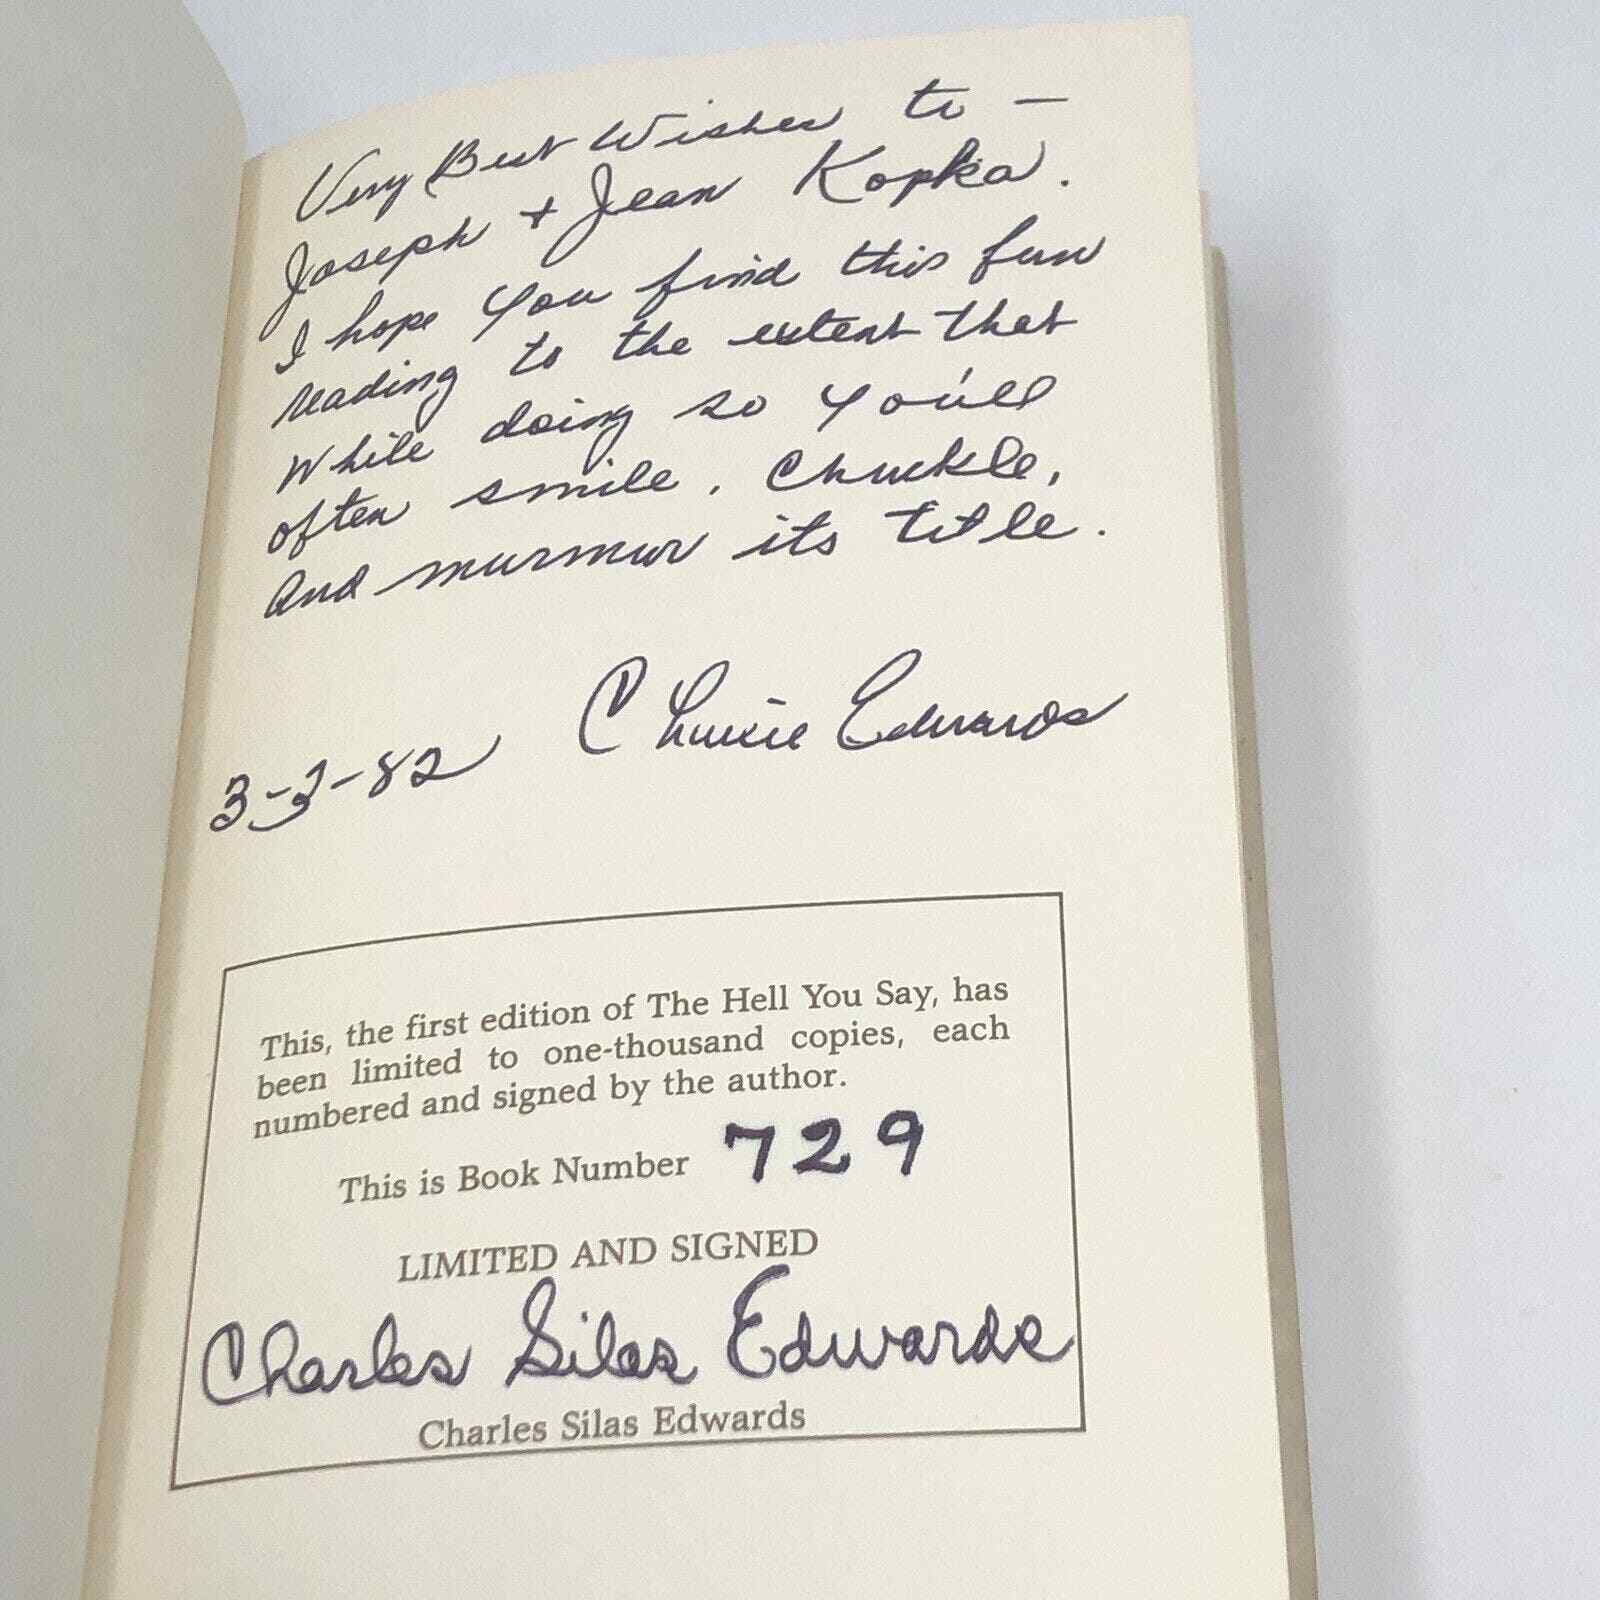 Very Best Wishes to —
Joseph + Jean Kopka.
I hope you find this fun
reading to the extent that
While doing so you'll
often smile, Chuckle,
And murmur its title.
Edwards
3-3-82
This, the first edition of The Hell You Say, has
been limited to one-thousand copies, each
numbered and signed by the author.
This is Book Number 729
LIMITED AND SIGNED
Charles Silas Edwards
Charles Silas Edwards